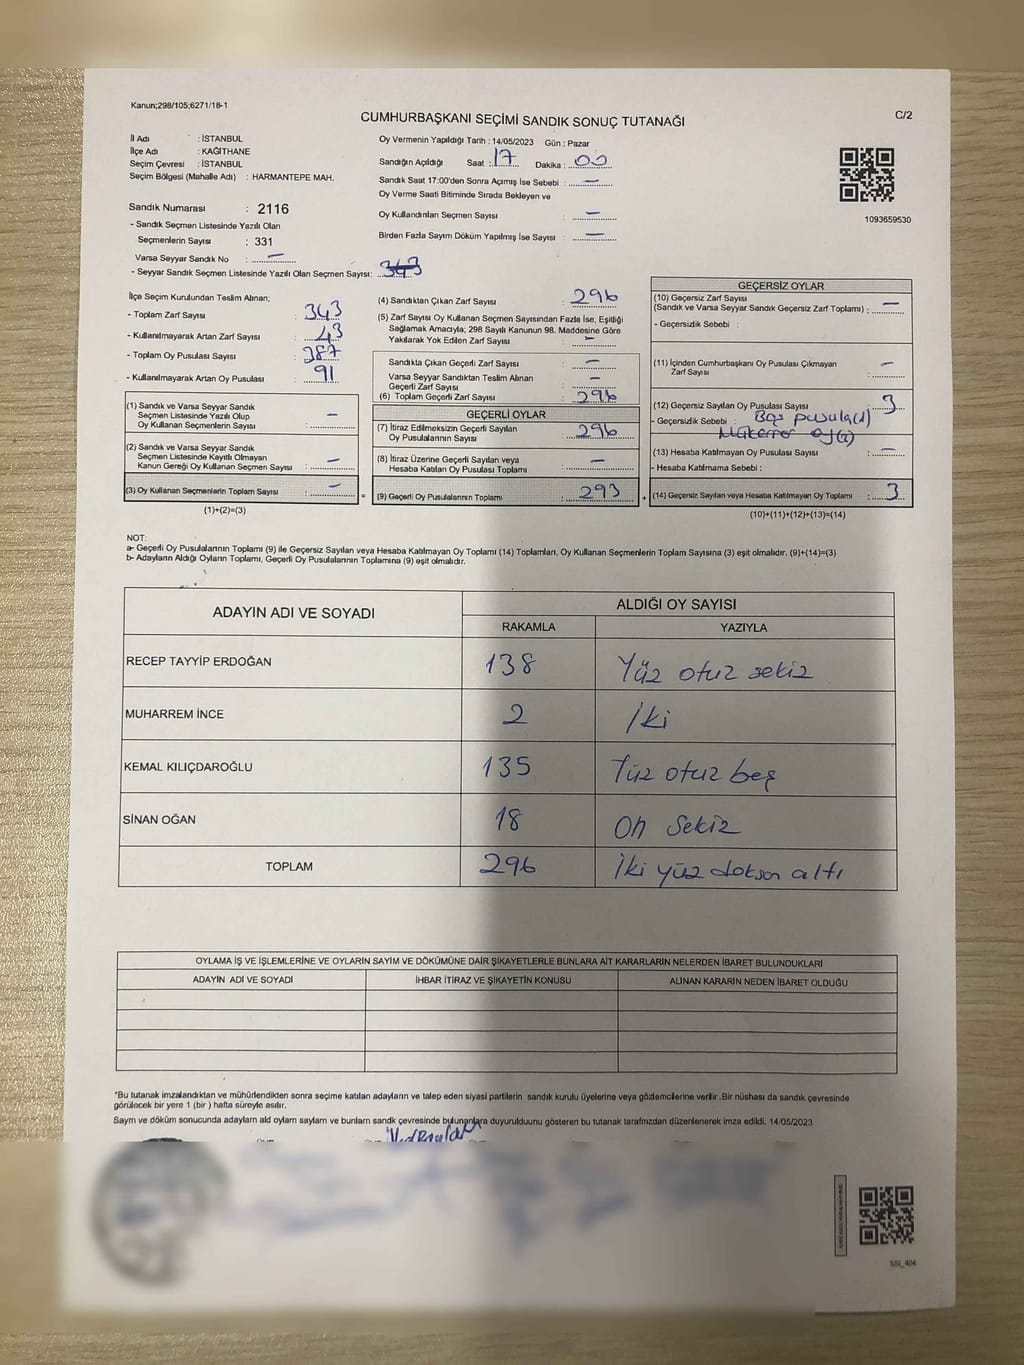 Kanun;298/105;6271/18-1
CUMHURBAŞKANI SEÇİMİ SANDIK SONUÇ TUTANAĞI
C/2
İl Adı : İSTANBUL
İlçe Adı : KAĞITHANE
Seçim Çevresi : İSTANBUL
Seçim Bölgesi (Mahalle Adı) : HARMANTEPE MAH.
Sandık Numarası : 2116
- Sandık Seçmen Listesinde Yazılı Olan
Seçmenlerin Sayısı : 331
Varsa Seyyar Sandık No : —
- Seyyar Sandık Seçmen Listesinde Yazılı Olan Seçmen Sayısı: 343
Oy Vermenin Yapıldığı Tarih : 14/05/2023 Gün : Pazar
Sandığın Açıldığı Saat : 17 Dakika : 00
Sandık Saat 17:00'den Sonra Açımış İse Sebebi : —
Oy Verme Saati Bitiminde Sırada Bekleyen ve
Oy Kullandırılan Seçmen Sayısı : —
Birden Fazla Sayım Döküm Yapılmış İse Sayısı : —
1093659530
İlçe Seçim Kurulundan Teslim Alınan;
- Toplam Zarf Sayısı : 343
- Kullanılmayarak Artan Zarf Sayısı : 43
- Toplam Oy Pusulası Sayısı : 387
- Kullanılmayarak Artan Oy Pusulası : 91
(1) Sandık ve Varsa Seyyar Sandık
Seçmen Listesinde Yazılı Olup
Oy Kullanan Seçmenlerin Sayısı : —
(2) Sandık ve Varsa Seyyar Sandık
Seçmen Listesinde Kayıtlı Olmayan
Kanun Gereği Oy Kullanan Seçmen Sayısı : —
(3) Oy Kullanan Seçmenlerin Toplam Sayısı : —
(1)+(2)=(3)
(4) Sandıktan Çıkan Zarf Sayısı : 296
(5) Zarf Sayısı Oy Kullanan Seçmen Sayısından Fazla İse, Eşitliği
Sağlamak Amacıyla; 298 Sayılı Kanunun 98. Maddesine Göre
Yakılarak Yok Edilen Zarf Sayısı : —
Sandıkta Çıkan Geçerli Zarf Sayısı : —
Varsa Seyyar Sandıktan Teslim Alınan
Geçerli Zarf Sayısı : —
(6) Toplam Geçerli Zarf Sayısı : 296
GEÇERLİ OYLAR
(7) İtiraz Edilmeksizin Geçerli Sayılan
Oy Pusulalarının Sayısı : 296
(8) İtiraz Üzerine Geçerli Sayılan veya
Hesaba Katılan Oy Pusulası Toplamı : —
= (9) Geçerli Oy Pusulalarının Toplamı : 293 +
GEÇERSİZ OYLAR
(10) Geçersiz Zarf Sayısı
(Sandık ve Varsa Seyyar Sandık Geçersiz Zarf Toplamı) : —
- Geçersizlik Sebebi :
(11) İçinden Cumhurbaşkanı Oy Pusulası Çıkmayan
Zarf Sayısı : —
(12) Geçersiz Sayılan Oy Pusulası Sayısı : 3
- Geçersizlik Sebebi : Boş pusula(1)
Mükerrer oy(2)
(13) Hesaba Katılmayan Oy Pusulası Sayısı : —
- Hesaba Katılmama Sebebi :
(14) Geçersiz Sayılan veya Hesaba Katılmayan Oy Toplamı : 3
(10)+(11)+(12)+(13)=(14)
NOT:
a- Geçerli Oy Pusulalarının Toplamı (9) ile Geçersiz Sayılan veya Hesaba Katılmayan Oy Toplamı (14) Toplamları, Oy Kullanan Seçmenlerin Toplam Sayısına (3) eşit olmalıdır. (9)+(14)=(3)
b- Adayların Aldığı Oyların Toplamı, Geçerli Oy Pusulalarının Toplamına (9) eşit olmalıdır.
ADAYIN ADI VE SOYADI
ALDIĞI OY SAYISI
RAKAMLA YAZIYLA
RECEP TAYYİP ERDOĞAN 138 Yüz otuz sekiz
MUHARREM İNCE 2 İki
KEMAL KILIÇDAROĞLU 135 Yüz otuz beş
SİNAN OĞAN 18 On Sekiz
TOPLAM 296 İki yüz doksan altı
OYLAMA İŞ VE İŞLEMLERİNE VE OYLARIN SAYIM VE DÖKÜMÜNE DAİR ŞİKAYETLERLE BUNLARA AİT KARARLARIN NELERDEN İBARET BULUNDUKLARI
ADAYIN ADI VE SOYADI İHBAR İTİRAZ VE ŞİKAYETİN KONUSU ALINAN KARARIN NEDEN İBARET OLDUĞU
*Bu tutanak imzalandıktan ve mühürlendikten sonra seçime katılan adayların ve talep eden siyasi partilerin sandık kurulu üyelerine veya gözlemcilerine verilir .Bir nüshası da sandık çevresinde
görülecek bir yere 1 (bir ) hafta süreyle asılır.
Sayım ve döküm sonucunda adayların ald oyların sayların ve bunların sandk çevresinde bulunanlara duyurulduunu gösteren bu tutanak tarafmzdan düzenlenerek imza edildi. 14/05/2023